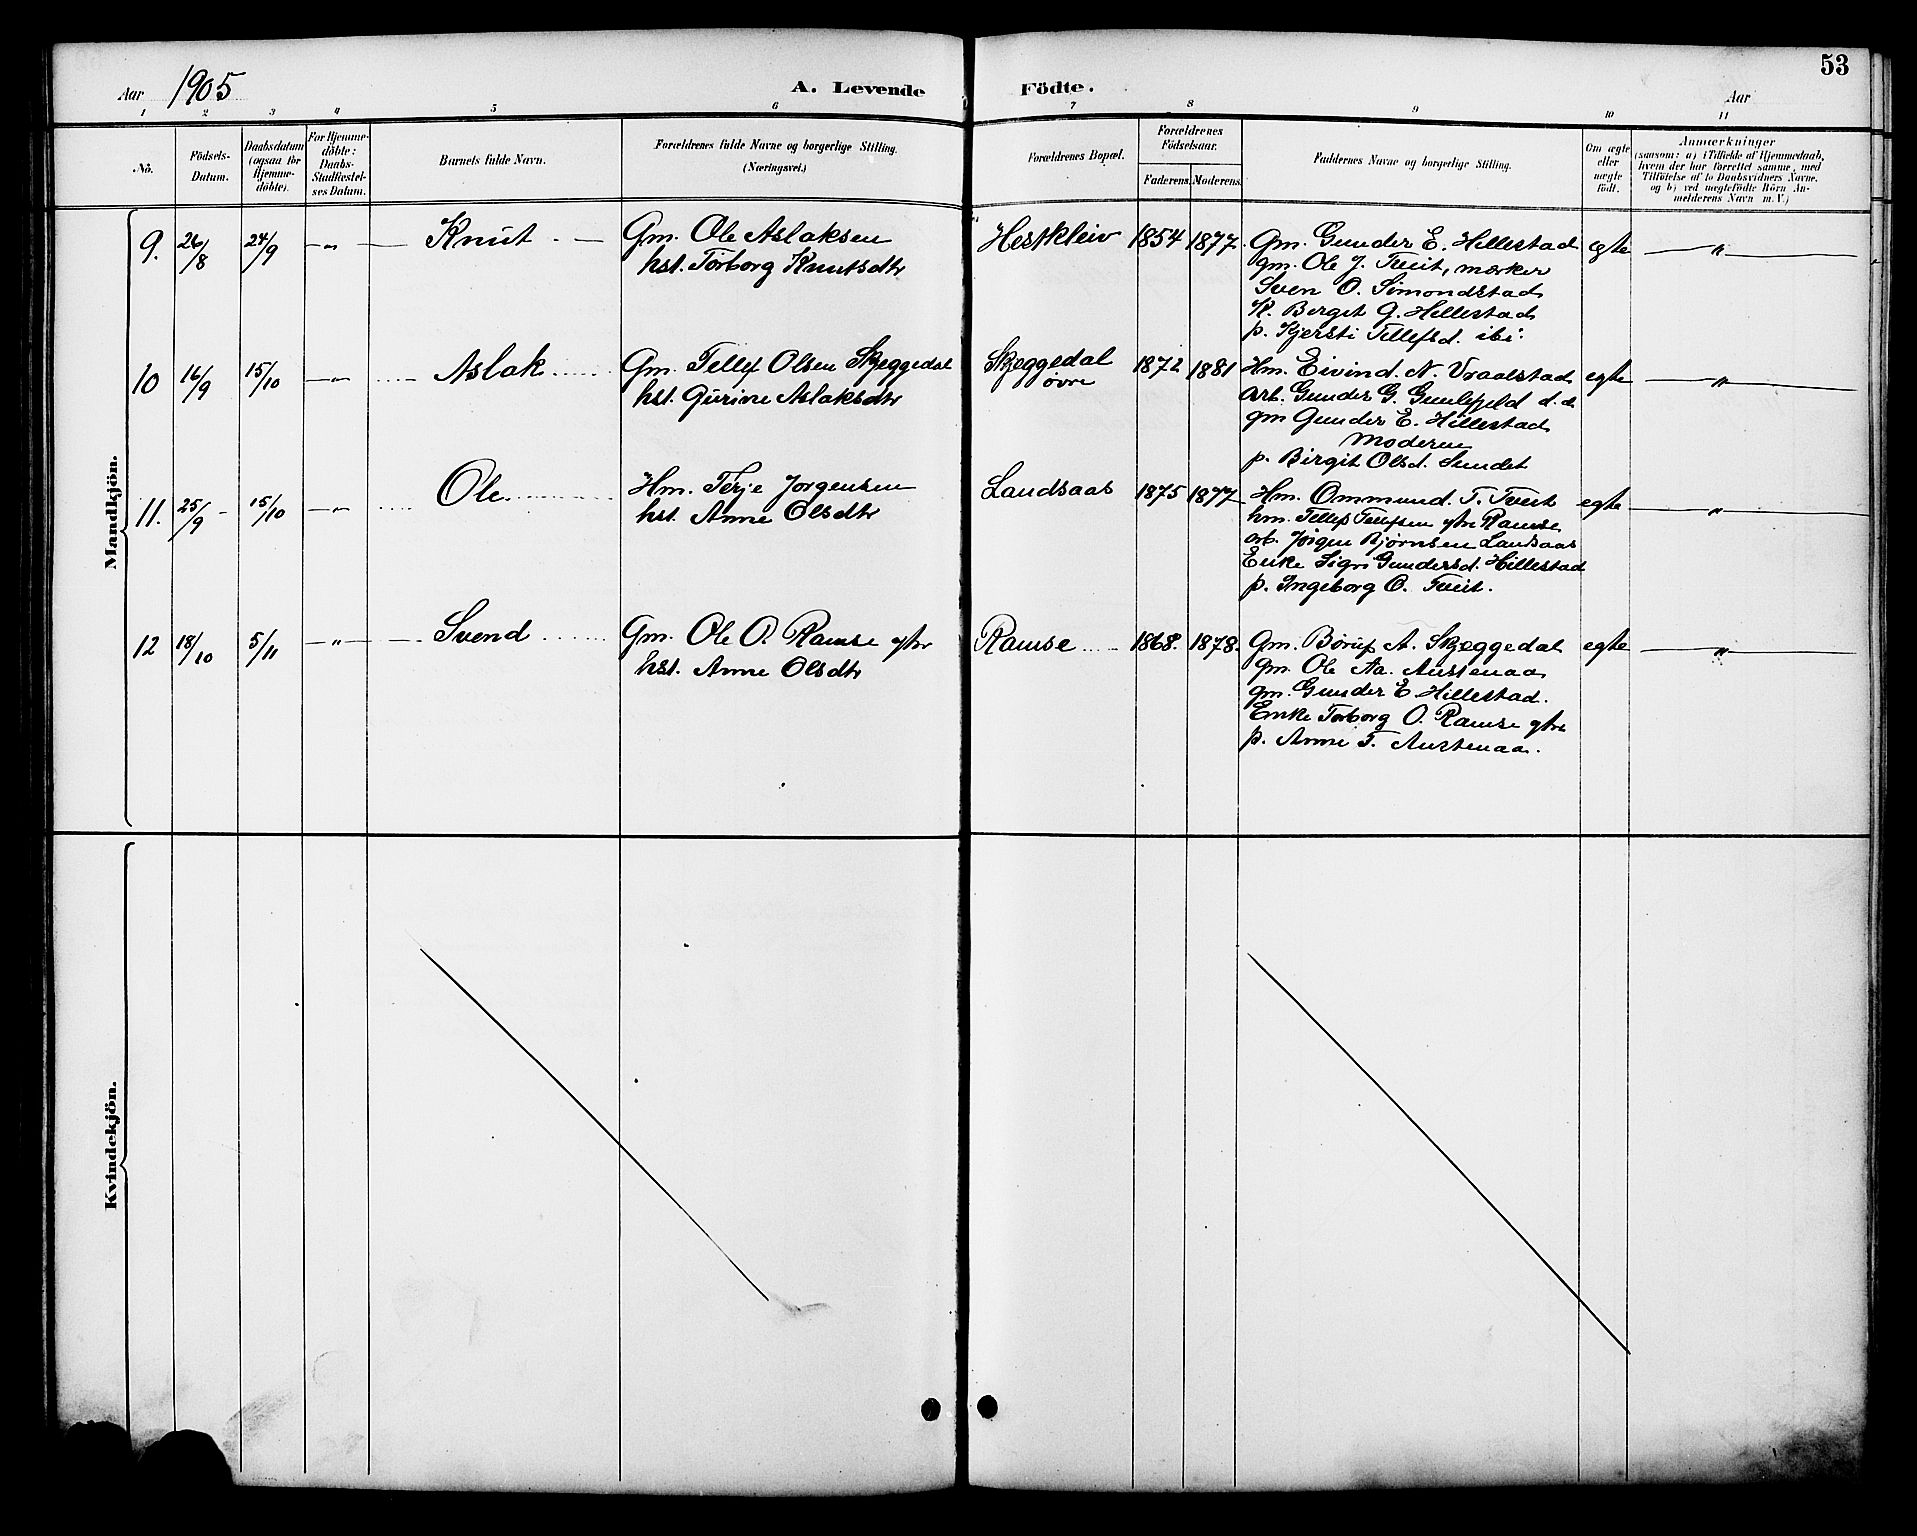 53
Aar 1905
A. Levende Födte.
Aar
1 2 3 4 5 6 7 8 9 10 11
No.
Födsels-
Datum.
Daabsdatum
(ogsaa for
Hjemme-
döbte).
For Hjemme-
döbte:
Daabs-
Stadfæstel-
ses Datum.
Barnets fulde Navn.
Forældrenes fulde Navne og borgerlige Stilling.
(Næringsvei.)
Forældrenes Bopæl.
Forældrenes
Födselsaar.
Faderens. Moderens.
Faddernes Navne og borgerlige Stilling.
Om ægte
eller
uægte
födt.
Anmærkninger
(saasom: a) i Tilfælde af Hjemmedaab,
hvem der har forrettet samme, med
Tilföielse af to Daabsvidners Navne.
og b) ved uægtefödte Börn An-
melderens Navn m. V.)
Mandkjön.
9. 26/8 24/9 — " — Knut
Gm. Ole Aslaksen
hst. Torborg Knutsdtr
Hestkleiv 1854 1877.
Gm. Gunder E. Hillestad
gm. Ole J. Tveit, mœrker
Sven O. Simondstad
K. Birgit G. Hillestad
p. Kjersti Tellefsd. ibi:
egte "
10 16/9 15/10 — " Aslak
Gm. Tellef Olsen Skjeggedal
hst. Gurine Aslaksdtr
Skjeggedal
øvre
1872 1881
Hm. Eivind N. Vraalstad
arb. Gunder G. Gaulefjeld d. d.
gm Gunder E. Hillestad
Moderen
p. Birgit Olsd. Sundet
egte "
11. 25/9 15/10 — " Ole
Hm. Terje Jorgensen
hst. Anne Olsdtr
Landsaas 1875 1877
Hm. Ommund T. Tveit
hm. Tellef Tellefsen ytre Ramse
arb. Jørgen Bjørnsen Landsaas
Enke Sigri Gundersd. Hillestad
p. Ingeborg O. Tveit.
egte "
12 18/10 5/11 — " — Svend
Gm. Ole O. Ramse ytre
hst. Anne Olsdtr
Ramse 1868. 1878.
Gm. Børup A. Skjeggedal
gm. Ole Aa. Austenaa
gm. Gunder E. Hillestad.
Enke Torborg O. Ramse ytre
p. Anne T. Austenaa.
egte "
Kvindekjön.